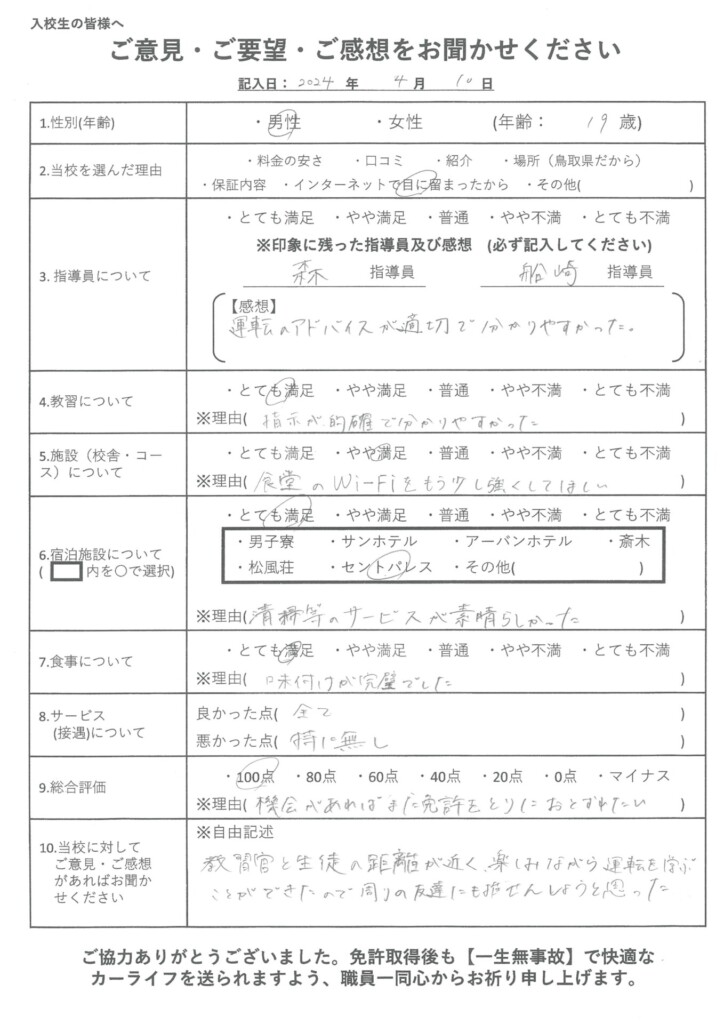 入校生の皆様へ
ご意見・ご要望・ご感想をお聞かせください
記入日： 2024 年 4 月 10 日
1.性別(年齢) ・男性 ・女性 (年齢： 19 歳)
2.当校を選んだ理由 ・料金の安さ ・口コミ ・紹介 ・場所（鳥取県だから）
・保証内容 ・インターネットで目に留まったから ・その他( )
3. 指導員について ・とても満足 ・やや満足 ・普通 ・やや不満 ・とても不満
※印象に残った指導員及び感想 (必ず記入してください)
森 指導員 船崎 指導員
【感想】
運転のアドバイスが適切で分かりやすかった。
4.教習について ・とても満足 ・やや満足 ・普通 ・やや不満 ・とても不満
※理由( 指示が的確で分かりやすかった )
5.施設（校舎・コース）について ・とても満足 ・やや満足 ・普通 ・やや不満 ・とても不満
※理由( 食堂のWi-Fiをもう少し強くしてほしい )
6.宿泊施設について
( 内を○で選択) ・とても満足 ・やや満足 ・普通 ・やや不満 ・とても不満
・男子寮 ・サンホテル ・アーバンホテル ・斎木
・松風荘 ・セントパレス ・その他( )
※理由( 清掃等のサービスが素晴らしかった )
7.食事について ・とても満足 ・やや満足 ・普通 ・やや不満 ・とても不満
※理由( 味付けが完璧でした )
8.サービス
(接遇)について 良かった点( 全て )
悪かった点( 特に無し )
9.総合評価 ・100点 ・80点 ・60点 ・40点 ・20点 ・0点 ・マイナス
※理由( 機会があればまた免許をとりにおとずれたい )
10.当校に対して
ご意見・ご感想
があればお聞か
せください ※自由記述
教習官と生徒の距離が近く、楽しみながら運転を学ぶ
ことができたので周りの友達にも推せんしようと思った
ご協力ありがとうございました。免許取得後も【一生無事故】で快適な
カーライフを送られますよう、職員一同心からお祈り申し上げます。